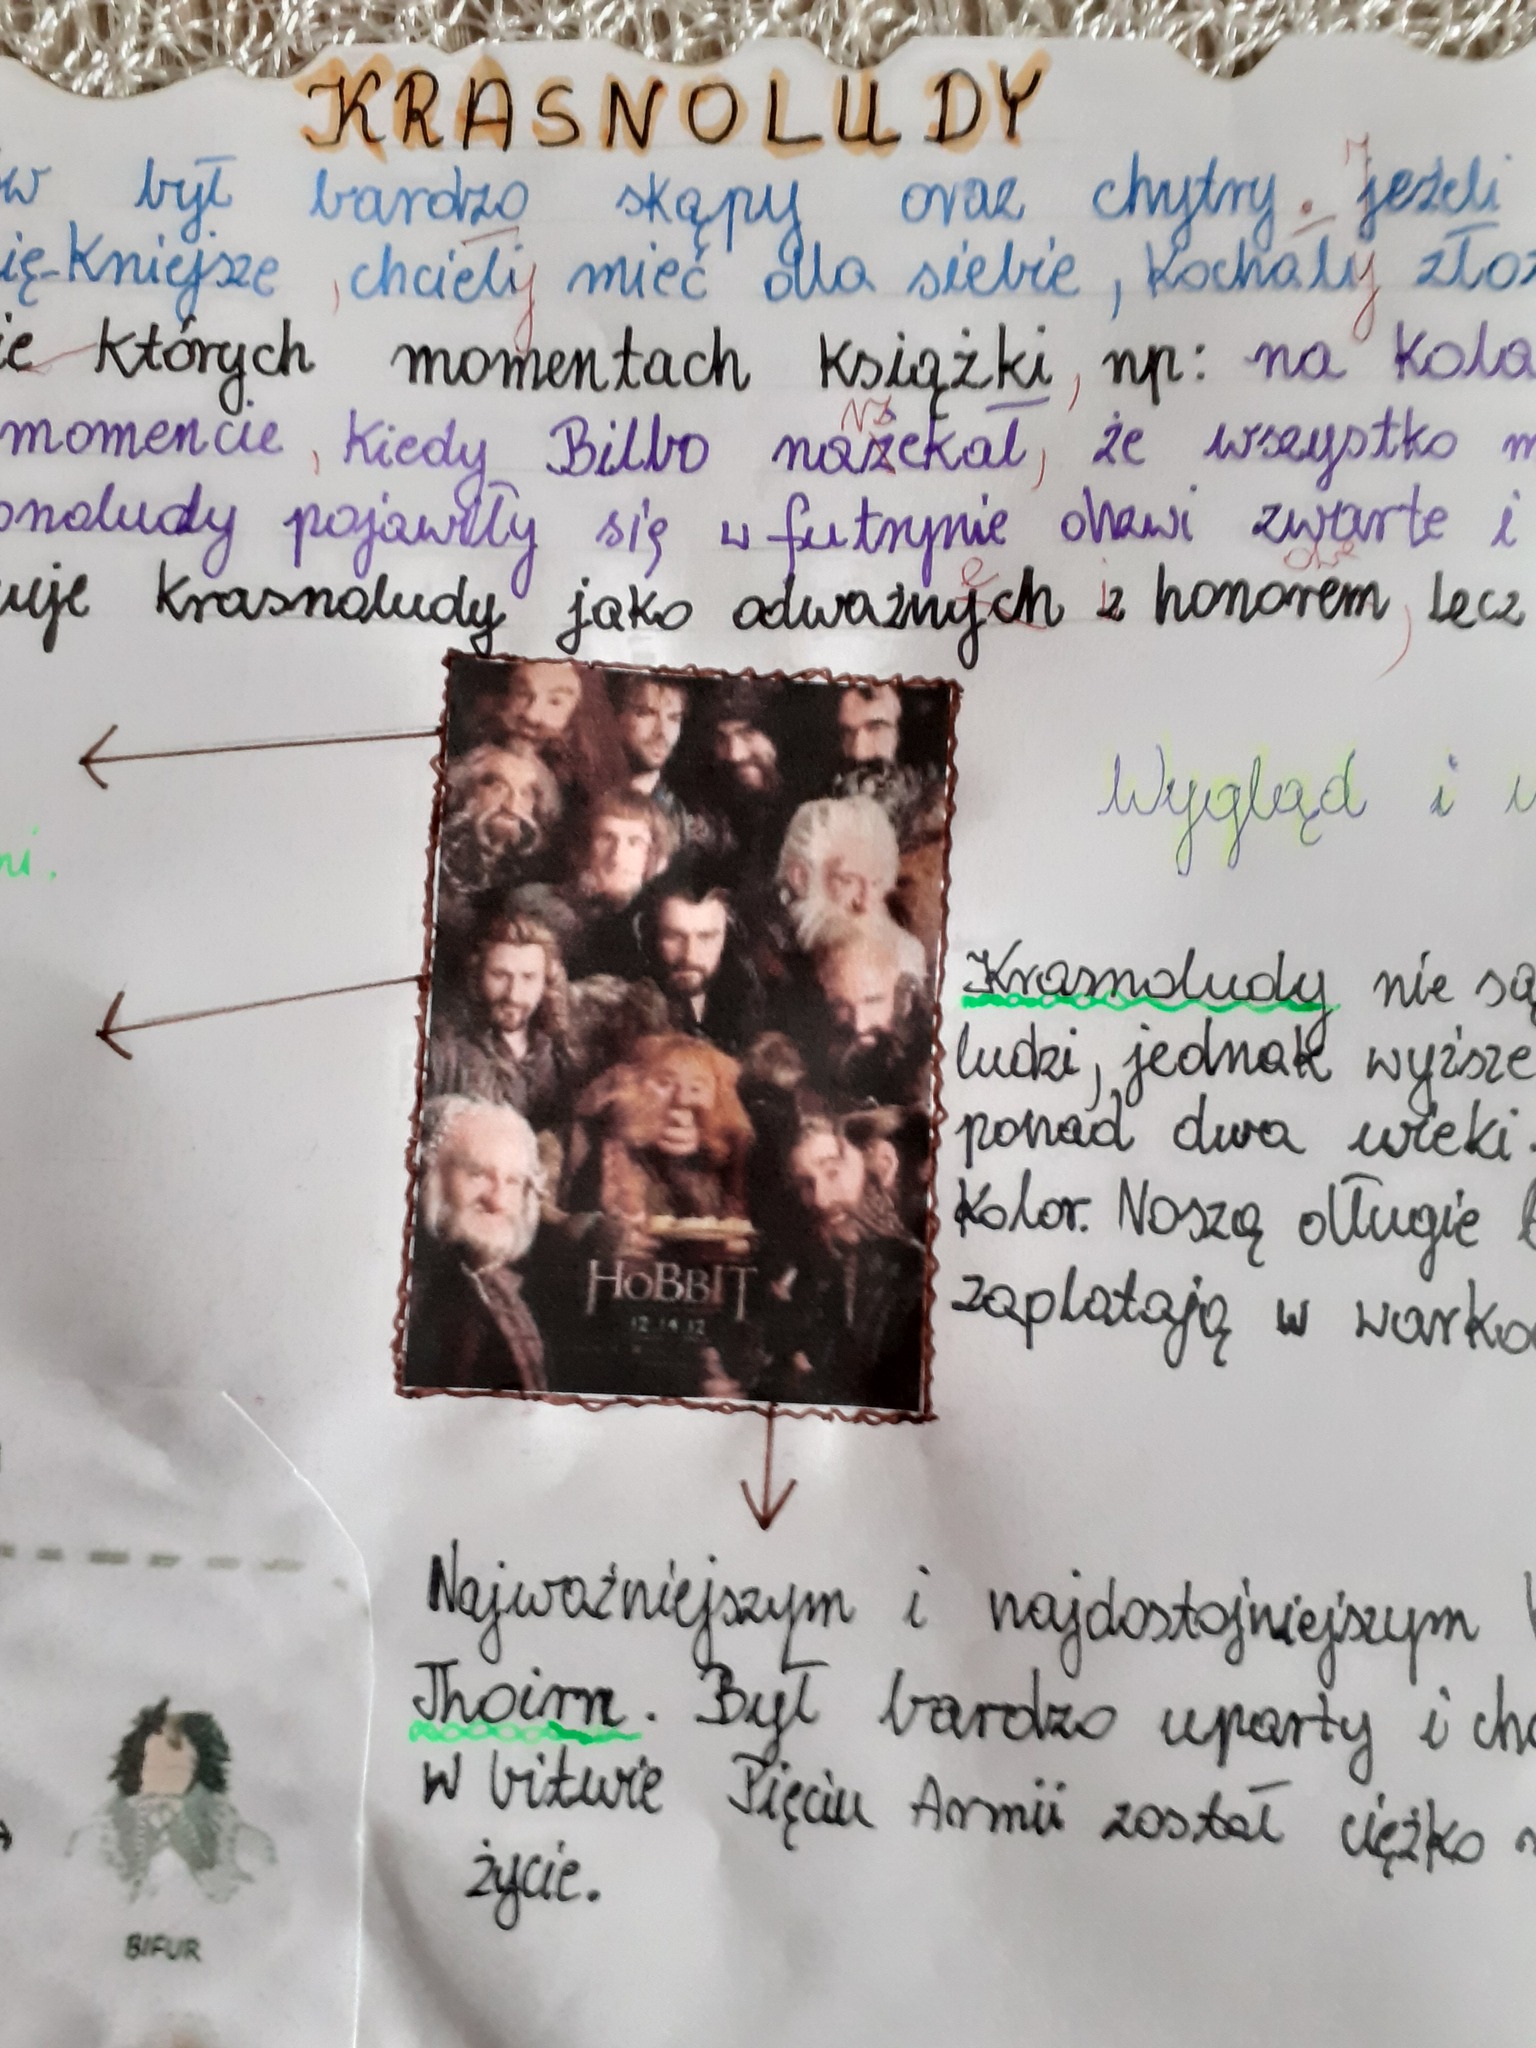 KRASNOLUDY
ów był bardzo skąpy oraz chytry. jeżeli
ię-kniejsze, chcieli mieć dla siebie, kochały złoż
ie których momentach książki, np: na kola
momencie, kiedy Bilbo nażekał, że wszystko m
onoludy pojawiły się w futrynie drzwi zwarte i
uje krasnoludy jako odważnych i z honorem, lecz
Wygląd i w
ni.
Krasnoludy nie są
ludzi, jednak wyższe
ponad dwa wieki.
kolor. Noszą długie b
zaplatają w warko
HOBBIT
12.14.12
Najważniejszym i najdostojniejszym
Thoirn. Był bardzo uparty i cho
W bitwie Pięciu Armii został ciężko
życie.
BIFUR